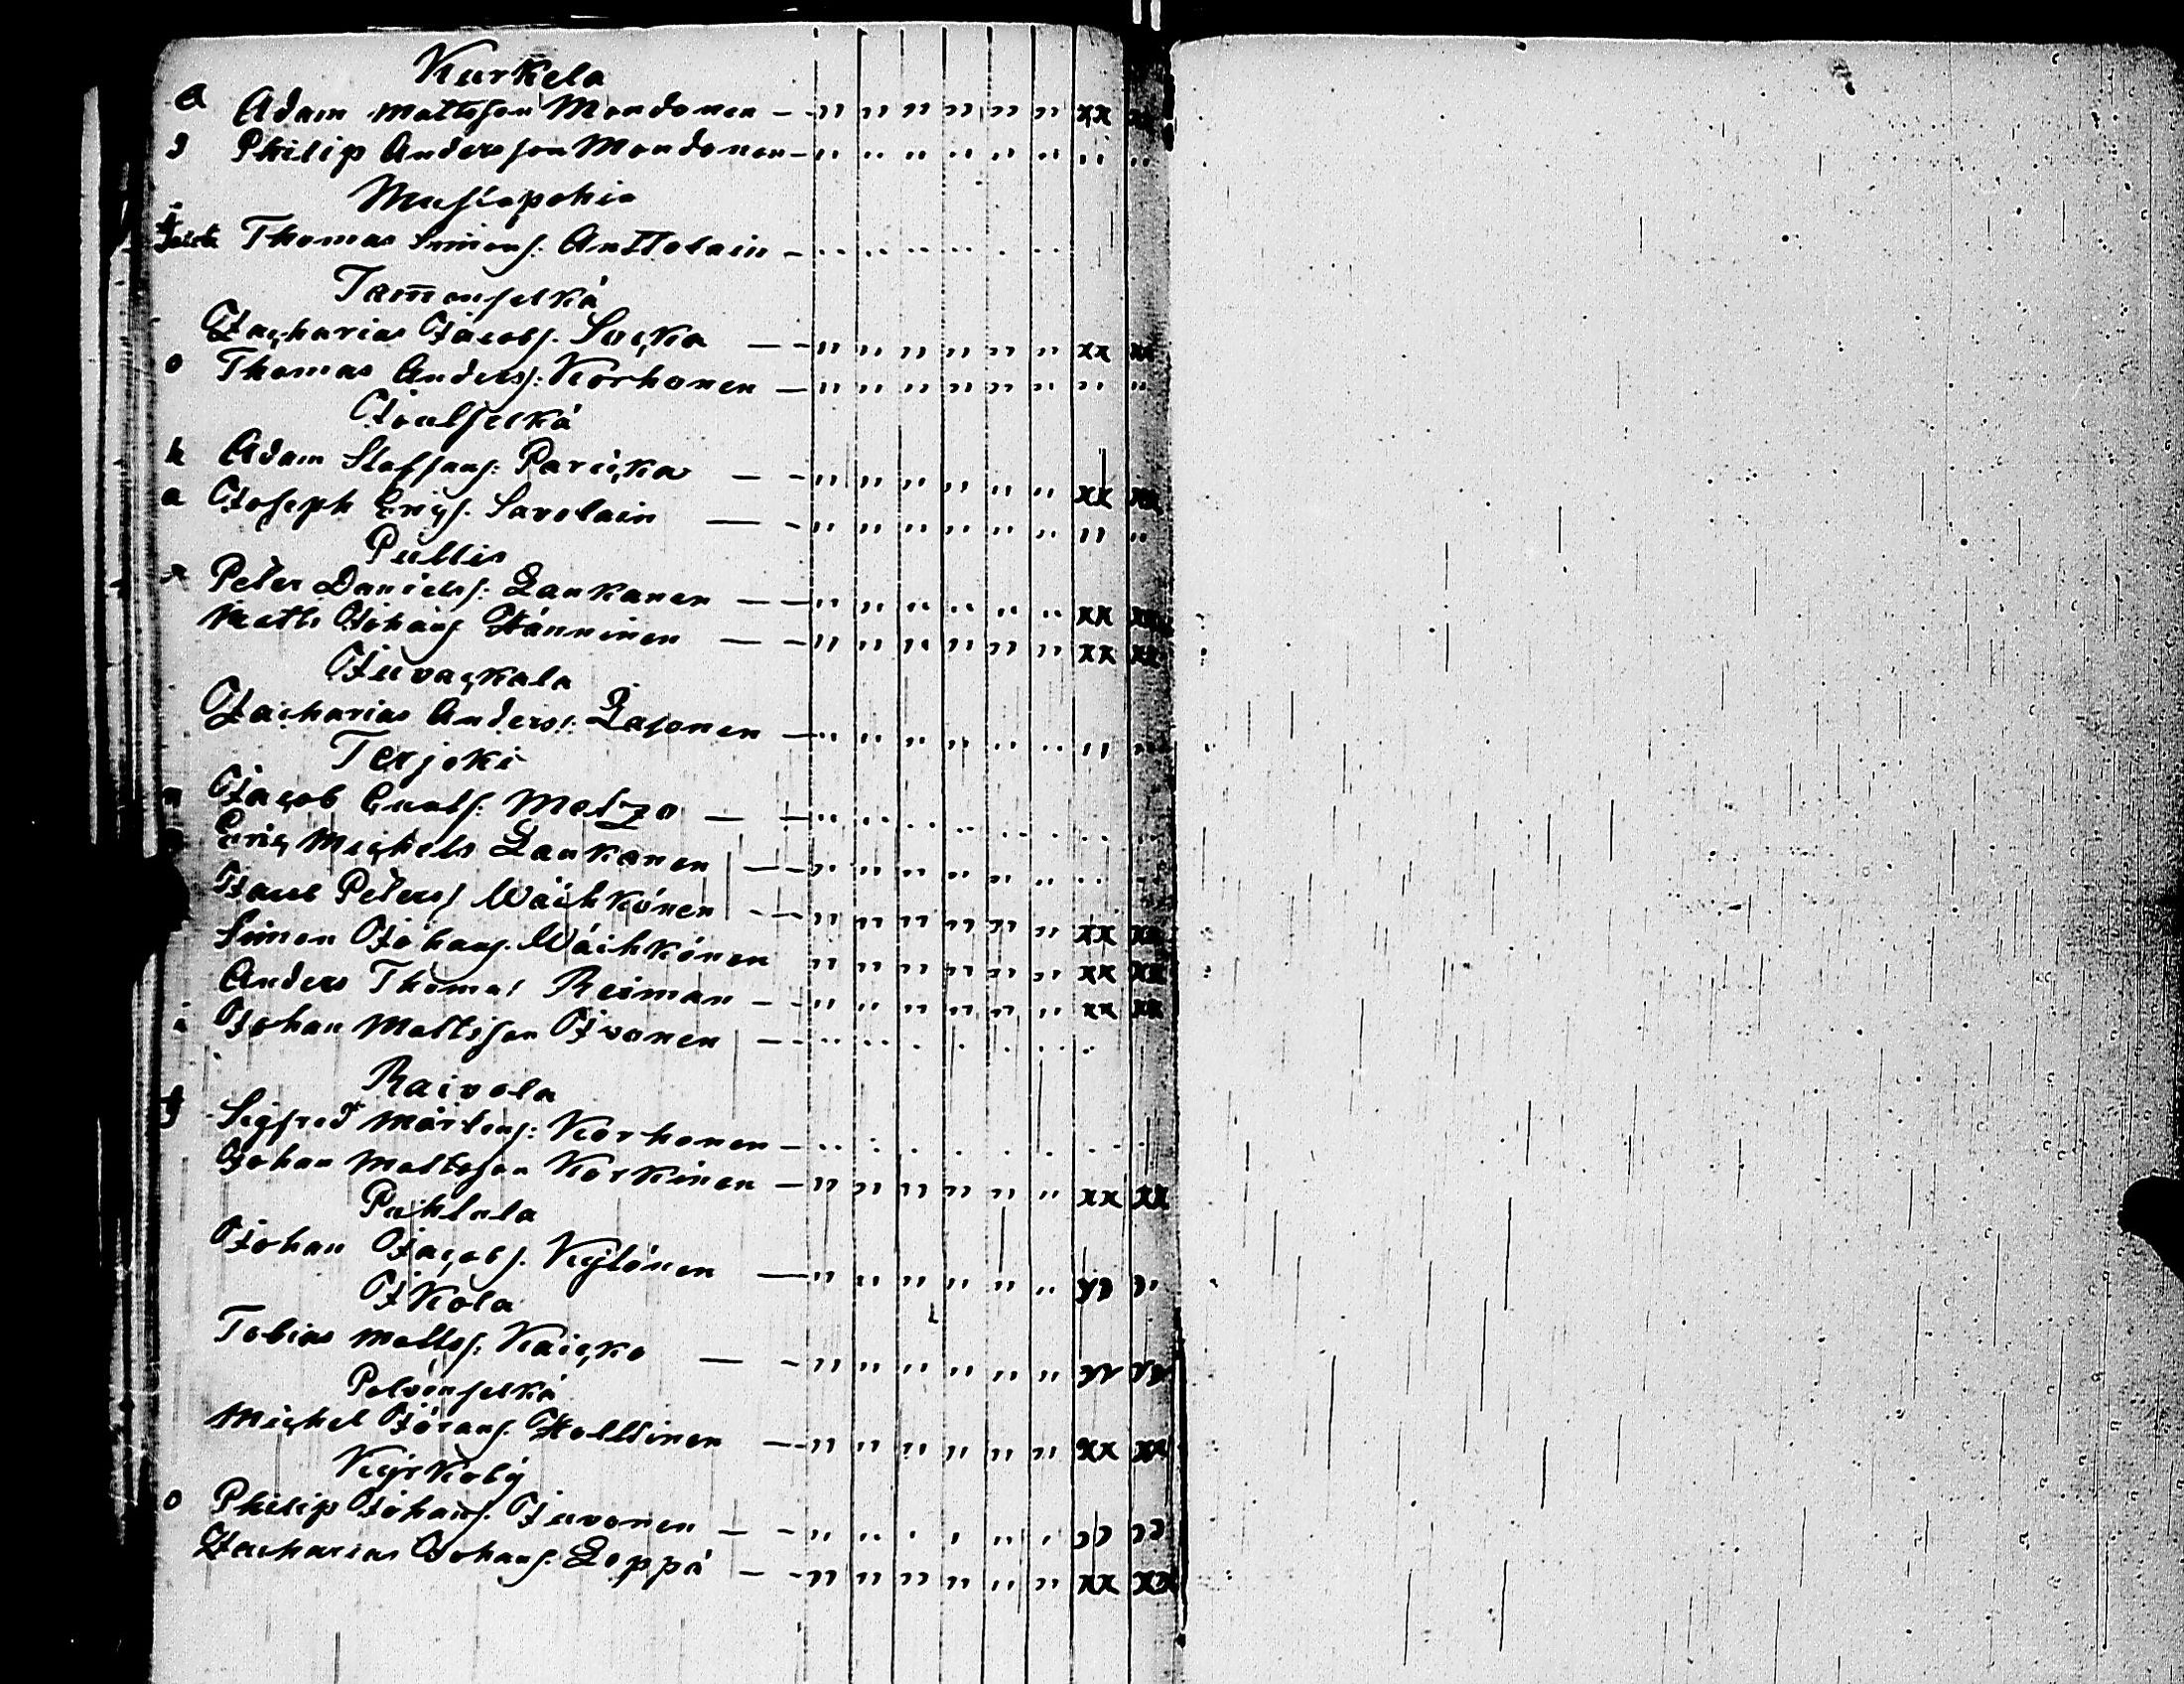 Kurkela
a Adam Mattsson Mondonen — „ „ „ „ „ „ xx xx
Philip Andersson Mondonen — „ „ „ „ „ „ „ „
Mustapohia
Thomas Simonss. Anttolain — „ „ „ „ „ „
Tam̄enselkä
Zacharias Jacobs. Sucka — „ „ „ „ „ „ xx xx
o Thomas Anderss: Korhonen — „ „ „ „ „ „ „ „
Joutselkä
k Adam Staffans: Parcicka — „ „ „ „ „ „ xx xx
a Joseph Ericss. Savolain — „ „ „ „ „ „ „ „
Pullis
Peter Daniels: Laukanen — „ „ „ „ „ „ xx xx
Matts Johans Hänninen — „ „ „ „ „ „ xx xx
Juvackala
Zacharias Anderss: Lajonen — „ „ „ „ „ „ „ „
Terjoki
Jacob Gustafs: Metzo — „ „ „ „ „ „ „ „
Eric Michels Laukanen — „ „ „ „ „ „ „ „
Jacob Peterss Wäihkönen — „ „ „ „ „ „ xx xx
Simon Johans. Wäihkönen „ „ „ „ „ „ xx xx
Anders Thomas Reiman — „ „ „ „ „ „ xx xx
Johan Mattsson Ivonen — „ „ „ „ „ „
Raivola
Sigfred Mårtens: Korhonen — „ „ „ „ „ „ „ „
Johan Mattsson Korkinen — „ „ „ „ „ „ xx xx
Puhtula
Johan Jacobs. Kylönen — „ „ „ „ „ „ „ „
Ikola
Tobias Matts: Kaicko — „ „ „ „ „ „
Polvenselkä
Michel Görans. Holttinen — „ „ „ „ „ „ xx xx
Kyrkoby
o Philip Johans. Juvonen — „ „ „ „ „ „ „ „
Zacharias Johans. Loppä — „ „ „ „ „ „ xx xx